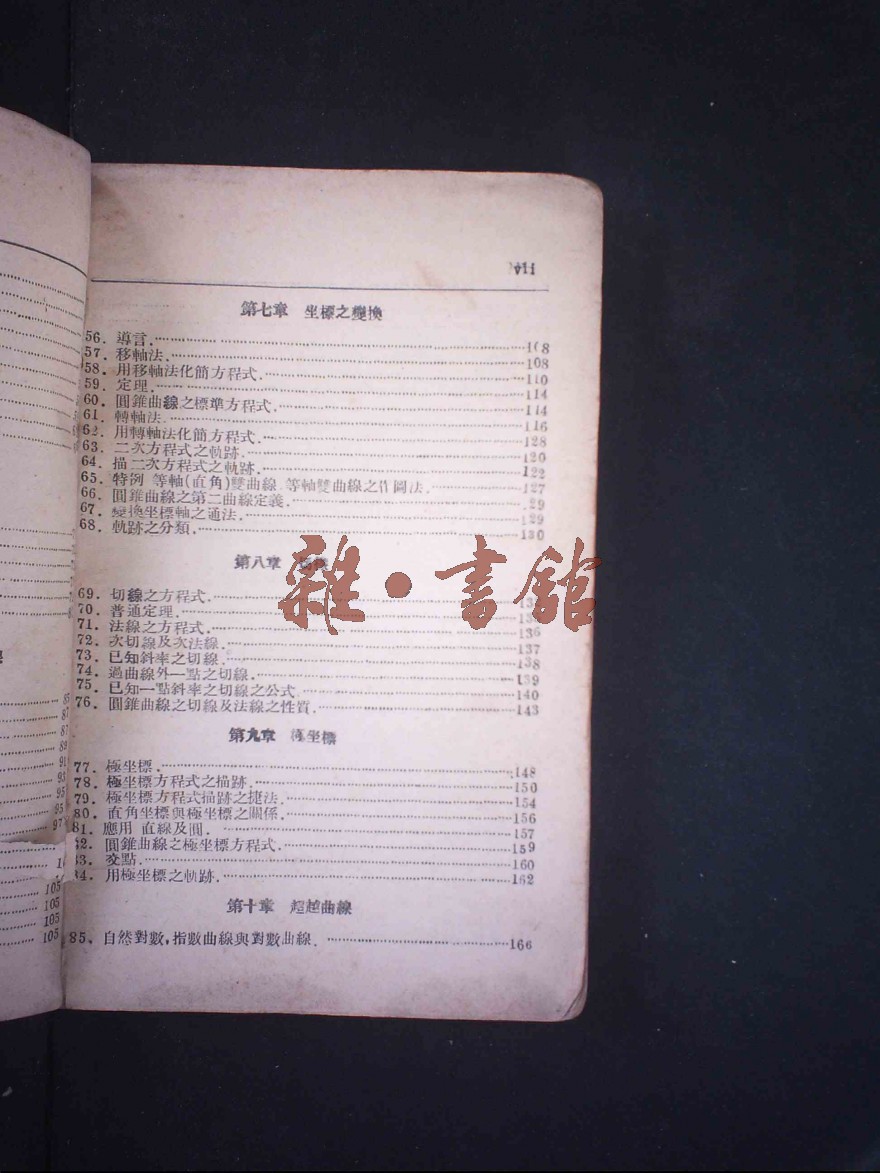 vii
第七章 坐標之變換
56. 導言 108
57. 移軸法 108
58. 用移軸法化簡方程式 110
59. 定理 114
60. 圓錐曲線之標準方程式 114
61. 轉軸法 116
62. 用轉軸法化簡方程式 128
63. 二次方程式之軌跡 120
64. 描二次方程式之軌跡 122
65. 特例 等軸(直角)雙曲線 等軸雙曲線之作圖法 127
66. 圓錐曲線之第二曲線定義 129
67. 變換坐標軸之通法 129
68. 軌跡之分類 130
第八章
69. 切線之方程式
70. 普通定理
71. 法線之方程式 136
72. 次切線及次法線 137
73. 已知斜率之切線 138
74. 過曲線外一點之切線 139
75. 已知一點斜率之切線之公式 140
76. 圓錐曲線之切線及法線之性質 143
第九章 極坐標
77. 極坐標 148
78. 極坐標方程式之描跡 150
79. 極坐標方程式描跡之捷法 154
80. 直角坐標與極坐標之關係 156
81. 應用 直線及圓 157
82. 圓錐曲線之極坐標方程式 159
83. 交點 160
84. 用極坐標之軌跡 162
第十章 超越曲線
85. 自然對數,指數曲線與對數曲線 166
雜·書館
85
87
87
89
91
93
95
95
97
105
105
105
105